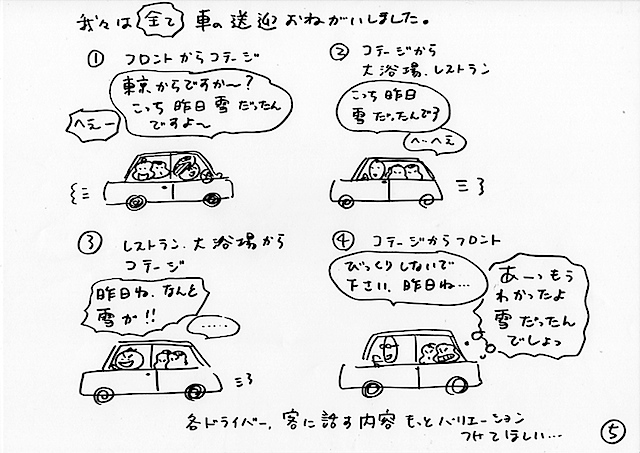 我々は 全て 車の送迎おねがいしました。
① フロントからコテージ
東京からですか〜?
こっち昨日雪だったん
ですよ〜
へぇー
② コテージから
大浴場、レストラン
こっち昨日
雪だったんですよ
へ〜へえ
③ レストラン、大浴場から
コテージ
昨日ね、なんと
雪が!!
……
④ コテージからフロント
びっくりしないで
下さい、昨日ね…
あーっもう
わかったよ
雪だったん
でしょっ
各ドライバー、客に話す内容もっとバリエーション
つけてほしい…
⑤